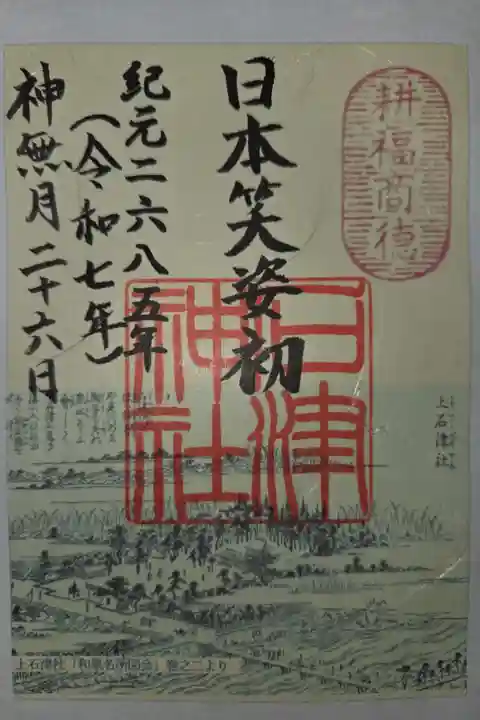 耕福高徳
日本笑姿初
石津
神社
紀元二六八五年
(令和七年)
神無月二十六日
上石津社
上石津社「和泉名所図会」巻之二より